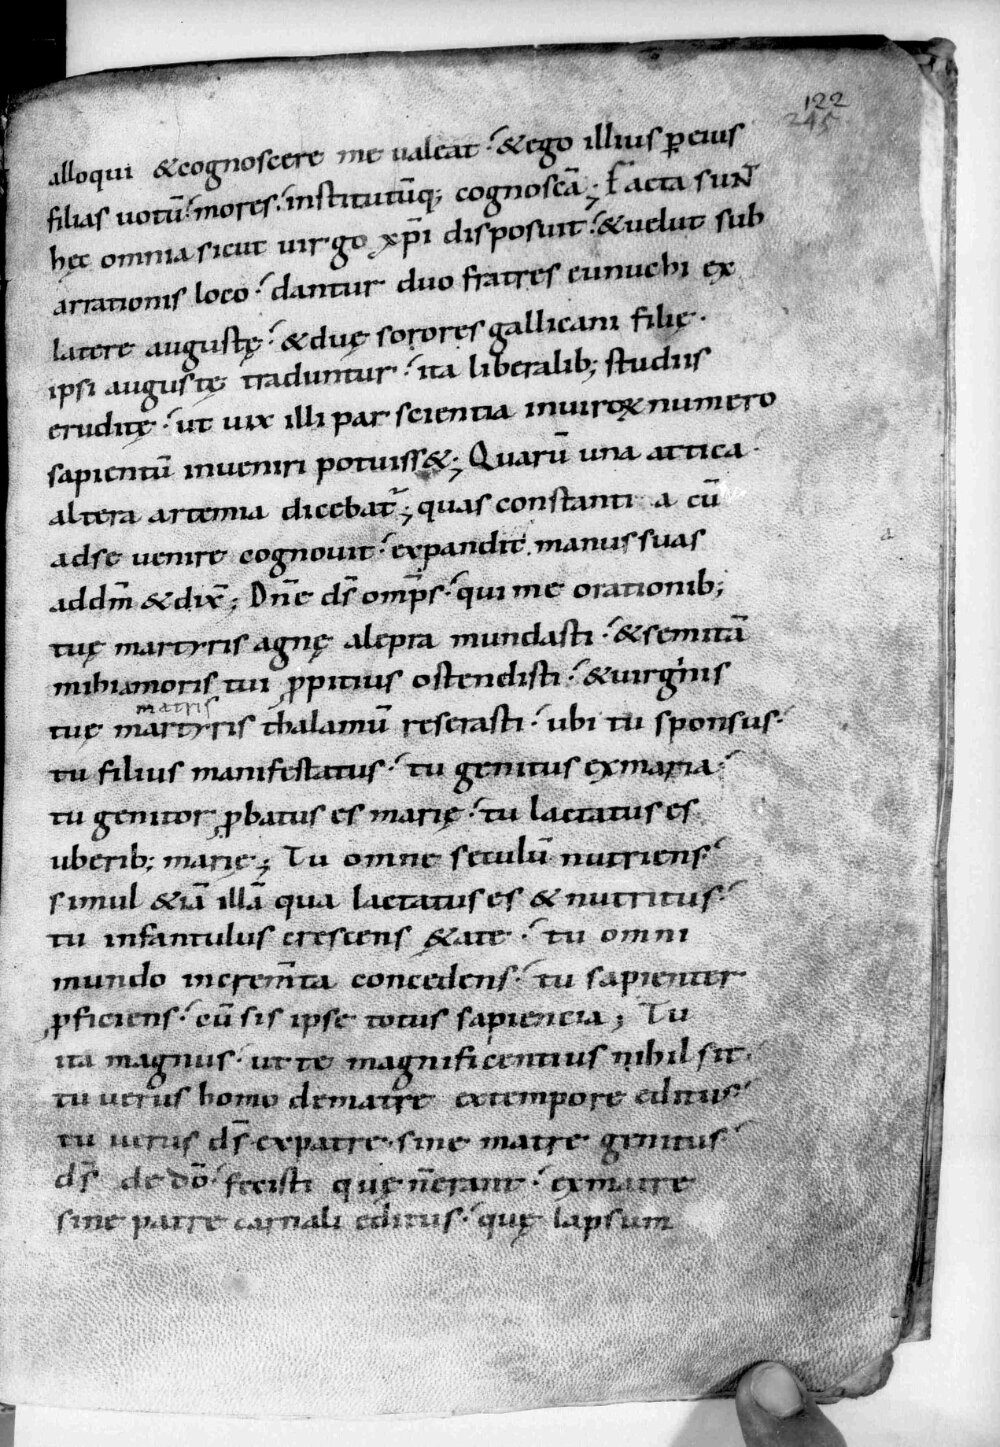 122
245
alloqui &cognoscere me ualeat · &ego illius p̱ eius
filias uotū · mores · institutūq; cognoscā; Facta sunt̄
hęc omnia sicut uirgo xp̄i disposuit · &uelut sub
arrationis loco · dantur duo fratres eunuchi ex
latere augustę · &duę sorores gallicani filię ·
ipsi augustę traduntur · ita liberalib; studiis
eruditę · ut uix illi par scientia inuiroꝝ numero
sapientū inueniri potuiss&; Quarū una attica ·
altera artemia dicebat᷑; quas constanti a cū
adse uenire cognouit · expandit manus suas
addm̄ &dix̄; Dn̄e ds̄ omp̄s · qui me orationib;
tuę martyris agnę alepra mundasti · &semitā
mihiamoris tui ꝓpitius ostendisti · &uirginis
matris
tuę martyris thalamū reserasti · ubi tu sponsus ·
tu filius manifestatus · tu genitus exmaria ·
tu genitor ꝓbatus es marię · tu lactatus es
uberib; marię; Tu omne seculū nutriens ·
simul &iā illā qua lactatus es & nutritus ·
tu infantulus crescens &ate · tu omni
mundo increm̄ta concedens · tu sapienter
ꝓficiens · cū sis ipse totus sapiencia; Tu
ita magnus · ut te magnificentius nihil sit ·
tu uerus homo dematre extempore editus ·
tu uerus ds̄ expatre · sine matre genitus ·
ds̄ de dō · fecisti quę n̄erant · exmatre
sine patre carnali editus · quę lapsum